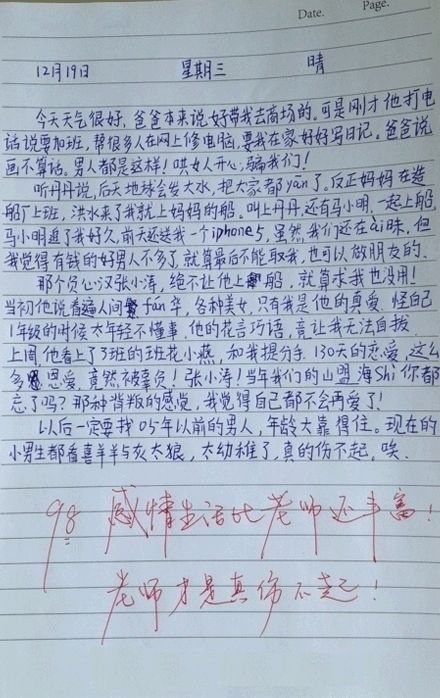 Date.    Page.
12月19日    星期三    晴
今天天气很好，爸爸本来说好带我去商场的。可是刚才他打电
话说要加班，帮很多人在网上修电脑，要我在家好好写日记。爸爸说
画不算话。男人都是这样！哄女人开心，骗我们！
听丹丹说，后天地球会发大水，把大家都yān了。反正妈妈在造
船厂上班，洪水来了我就上妈妈的船。叫上丹丹，还有马小明，一起上船，
马小明追了我好久，前天还送我一个iphone5，虽然我们还在ai昧，但
我觉得有钱的好男人不多了，就算最后不能取我，也可以做朋友的。
那个负心汉张小涛，绝不让他上船，就算求我也没用！
当初他说看遍人间fán华，各种美女，只有我是他的真爱，怪自己
1年级的时候太年轻不懂事，他的花言巧语，竟让我无法自拔
上周他看上了3班的班花小燕，和我提分手，130天的恋爱，这么
多恩爱，竟然被辜负！张小涛！当年我们的山盟海Shi你都
忘了吗？那种背叛的感觉，我觉得自己都不会再爱了！
以后一定要找05年以前的男人，年龄大靠得住。现在的
小男生都看喜羊羊与灰太狼，太幼稚了，真的伤不起，唉．
98 感情生活比老师还丰富！
老师才是真伤不起！